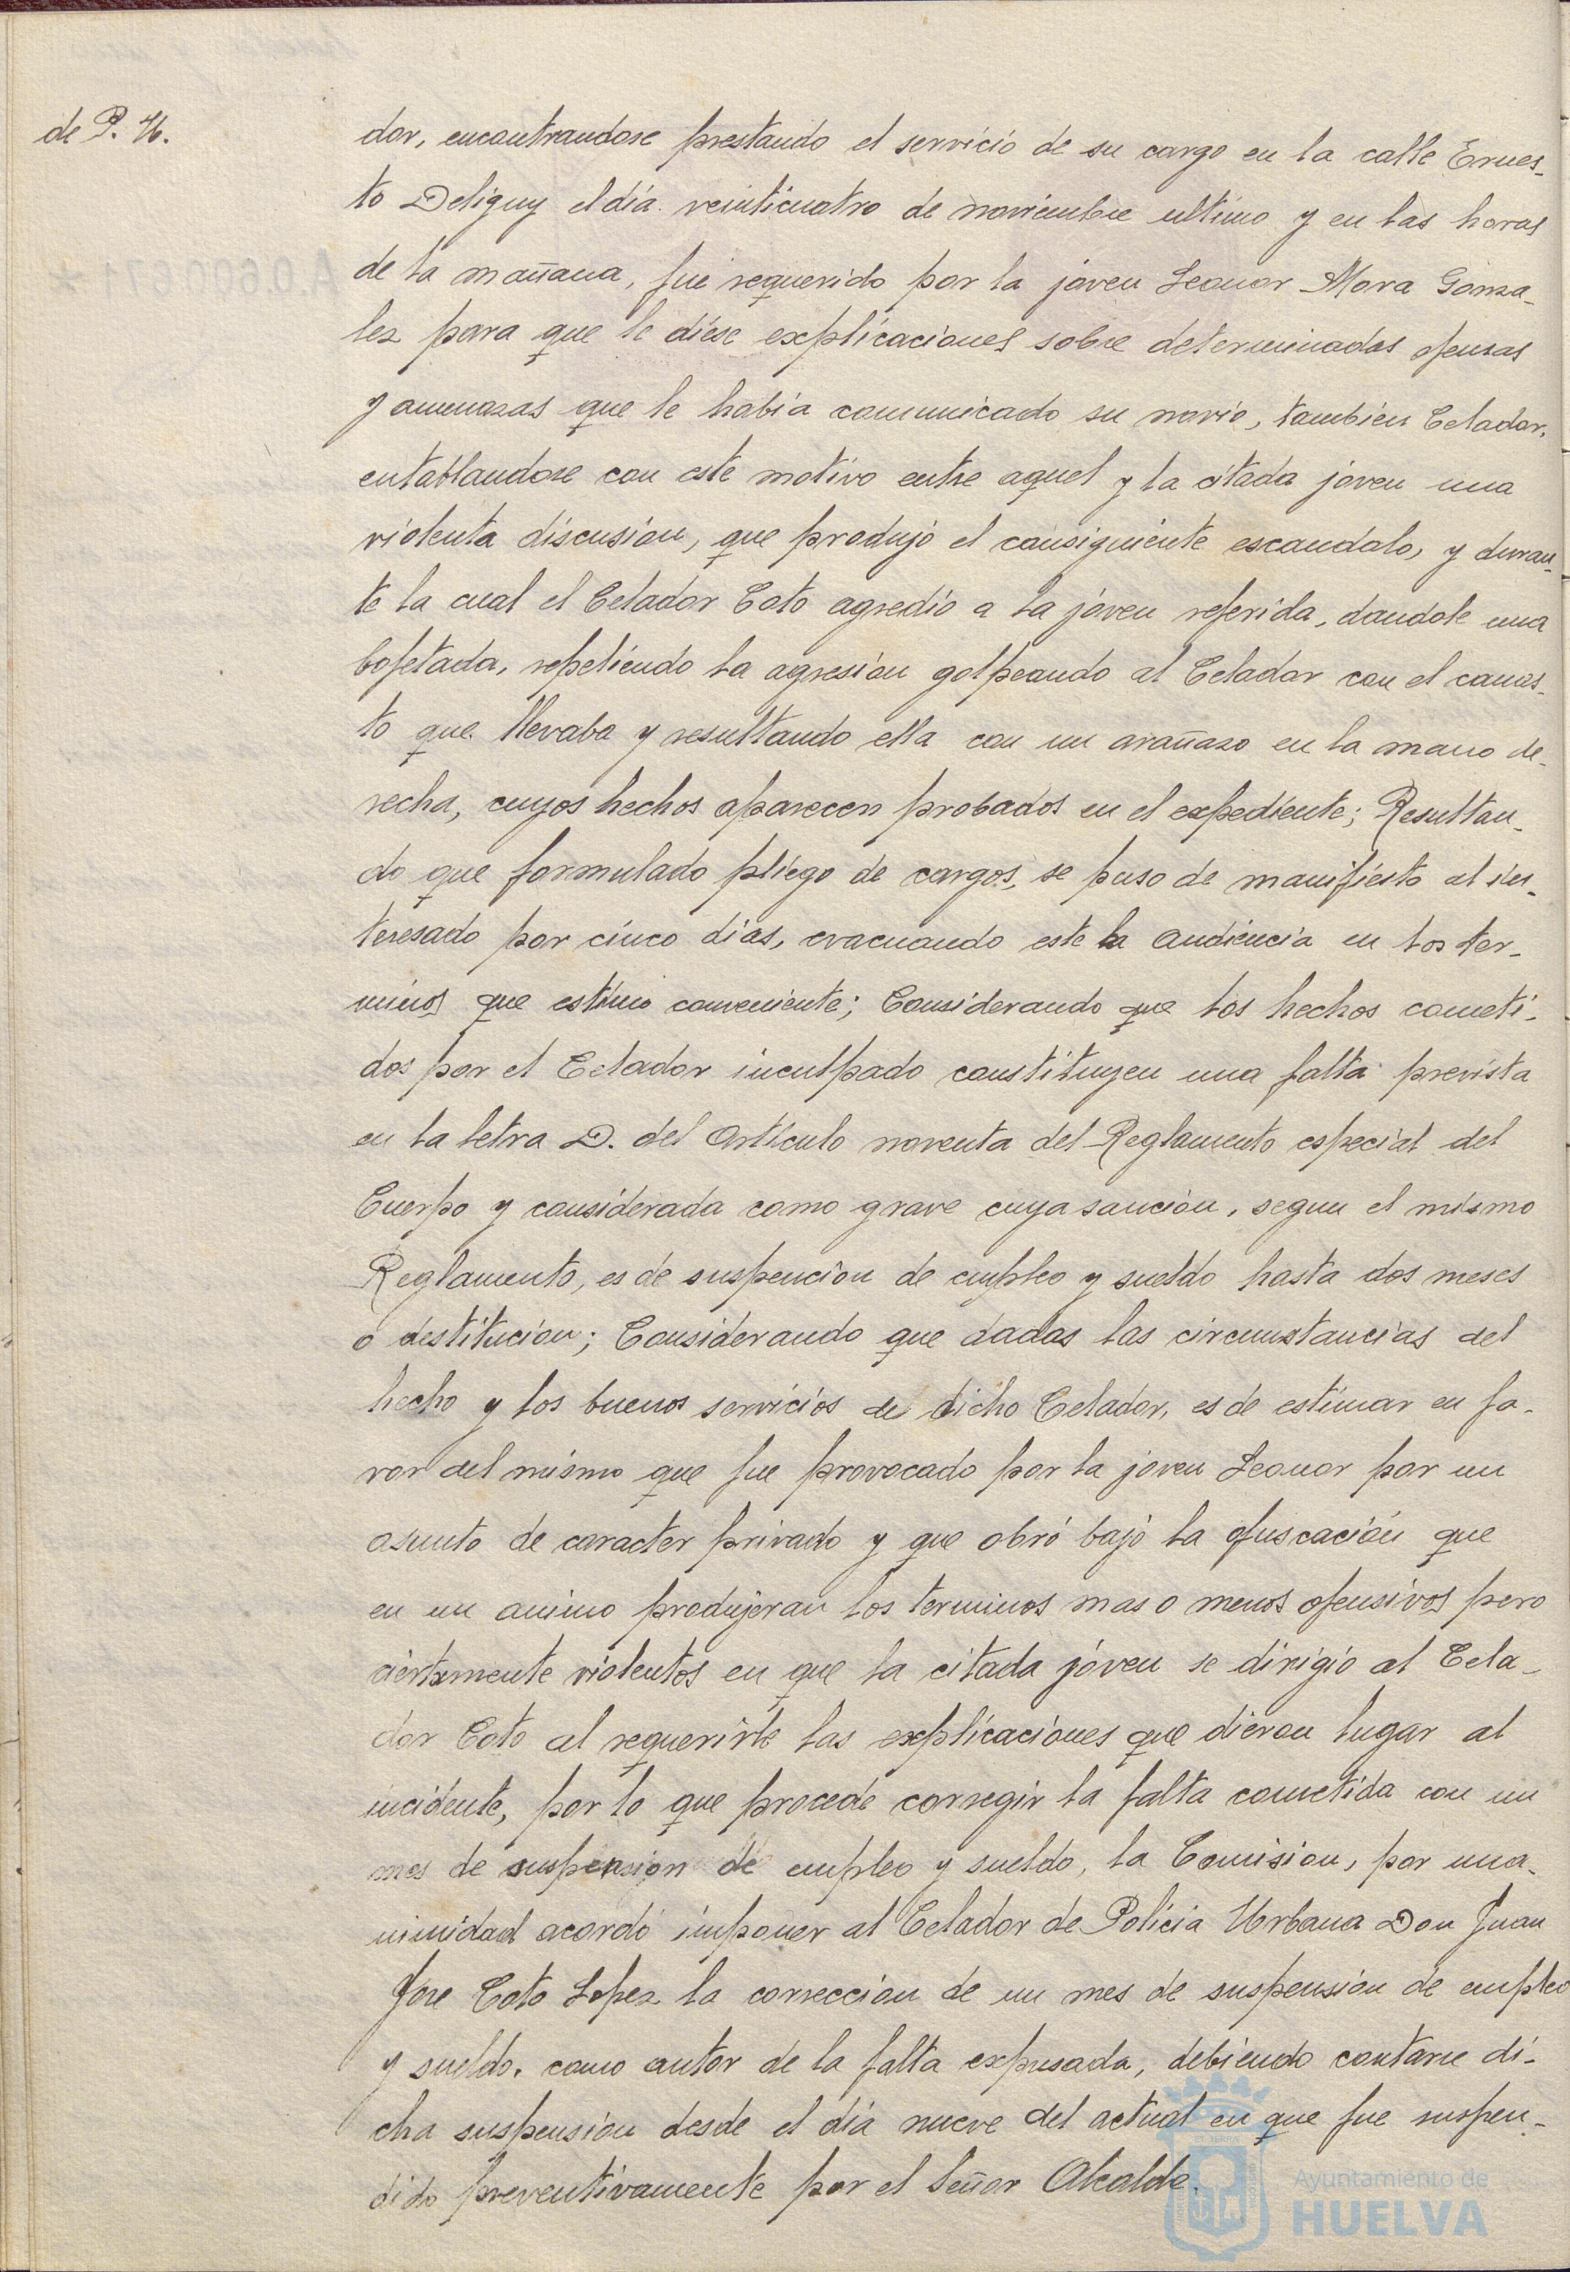 de P. U.
dor, encontrandose prestando el servicio de su cargo en la calle Ernes-
to Deligny el dia veinticuatro de noviembre ultimo y en las horas
de la mañana, fué requerido por la joven Leonor Mora Gonza-
lez para que le diese explicaciones sobre determinadas ofensas
y amenazas que le habia comunicado su novio, tambien Celador,
entablandose con este motivo entre aquel y la citada joven una
violenta discusion, que produjo el consiguiente escandalo, y duran-
te la cual el Celador Coto agredió a la joven referida, dandole una
bofetada, repeliendo la agresion golpeando al Celador con el canas-
to que llevaba y resultando ella con un arañazo en la mano de-
recha, cuyos hechos aparecen probados en el expediente; Resultan-
do que formulado pliego de cargos, se puso de manifiesto al in-
teresado por cinco dias, evacuando este la audiencia en los ter-
minos que estimo conveniente; Considerando que los hechos cometi-
dos por el Celador inculpado constituyen una falta prevista
en la letra D. del Articulo noventa del Reglamento especial del
Cuerpo y considerada como grave cuya sancion, segun el mismo
Reglamento, es de suspencion de empleo y sueldo hasta dos meses
o destitucion; Considerando que dadas las circunstancias del
hecho y los buenos servicios de dicho Celador, es de estimar en fa-
vor del mismo que fue provocado por la joven Leonor por un
asunto de caracter privado y que obró bajo la ofuscación que
en un animo produjeran los terminos mas o menos ofensivos pero
ciertamente violentos en que la citada jóven se dirigió al Cela-
dor Coto al requerirle las explicaciones que dieron lugar al
incidente, por lo que procede corregir la falta cometida con un
mes de suspension de empleo y sueldo, la Comision, por una-
nimidad acordó imponer al Celador de Policia Urbana Don Juan
Jose Coto Lopez la correccion de un mes de suspension de empleo
y sueldo, como autor de la falta expresada, debiendo contarse di-
cha suspension desde el dia nueve del actual en que fue suspen-
dido preventivamente por el Señor Alcalde.
Ayuntamiento de
HUELVA